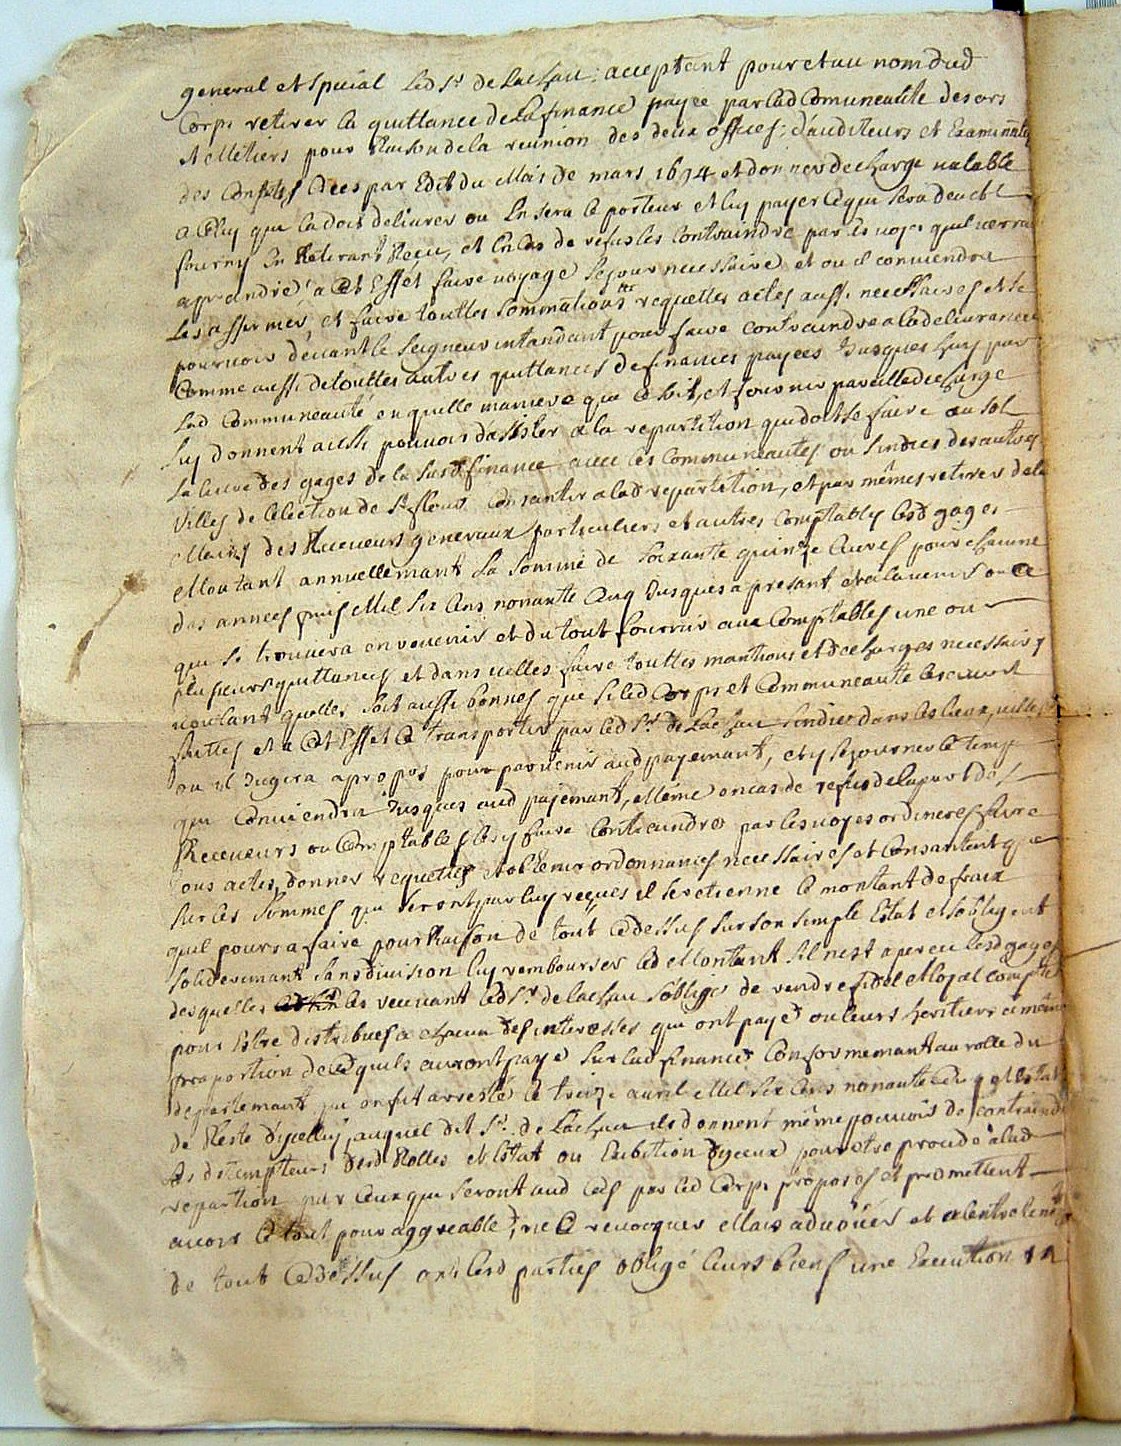 general et spuial Led Sr de Lachau acceptant pour et au nom dud
Corps retirer la quittance de La finance payée par lad Comuneauté des ars
et Mêtiers pour Raison de la reunion des deux offices d'auditeurs et Examinate
des Comptes crées par Edit du Mois de mars 1694 et donner decharge valable
a Celluy qui la doit delivrer ou En sera le porteur et luy payer Ce qui sera deu et
fourny En Retirant Reçeu, et En Cas de refus les Contraindre par les voyes quil verra
apreandre a Cet Effét faire voyage sejour necessaire et ou il conviendra
Les affirmer, et faire touttes sommations requettes actes aussi necessaires et se
pourvoir devant le seigneur intandant pour faire contraindre a la delivrance
Comme aussi de touttes autres quittances de finances payées Jusques huy par
Lad Communeauté en quelle maniere que ce soit, et fournir pareille decharge
Luy donnent aussi pouvoir dassister a la repartition qui doit se faire au sol
La livre des gages de la susd finance avec les Communeautes ou sindics des autres
Villes de l'election de St flour Consantir a lad repartition, et par mêmes retirer de la
Mains des Receveurs generaux particuliers et autres Comptables lesd gages
Montant annuellemant La somme de soixante quinze livres pour chacune
des annees puis Mil six Cens nonante Cinq Jusques a presant et a lavenir ou Ce
qui se trouvera en revenir et du tout fournir aux Comptables une ou
plusieurs quittances et dans icelles faire touttes mantions et decharges necessaires
voulant quelles soit aussi bonnes que si led Corps et Communeauté les avoit
faittes et a Cet Effet Ce transporter par led Sr de Lachau sindic dans les lieux, villes
ou il Jugera apropos pour parvenir aud payemant, et y sejourner le temps
qui Conviendra Jusques aud payemant, et Même en cas de refus de la part des
Receveurs ou Comptables les y faire Contraindre par les voyes ordineres faire
tous actes, donner requettes et obtenir ordonnances necessaires et Consantent que
sur les sommes qui seront par luy reçues il se retienne Le montant de fraix
quil pourra faire pour Raison de tout Cedessus sur son simple Estat et sobligent
solidairemant sans division luy rembourser led Montant sil nest aperceu lesd gages
desquelles les recevant led Sr de lachau soblige de rendre fidel et Loyal compte
pour Estre distribués a chacun des interessés qui ont payé ou leurs heritiers a même
proportion de Ce quils auront payé sur lad finance Conformemant au rolle du
departemant qui en fut arresté le treize avril Mil six Cens nonante Cinq et Estat
de Reste d'icelluy, auquel dit Sr de Lachau ils donnent même pouvoir de contraindre
Les detempteurs desd Rolles et Estat ou Exibition d'yceux pour etre procedé a lad
repartion par Ceux qui seront aud Cas par led Corps proposés et promettent
avoir le tout pour aggreable, ne Ce revocquer Mais advoüer et a lentretenemt
de tout Cedessus ont lesd parties obligé leurs biens une Execution en